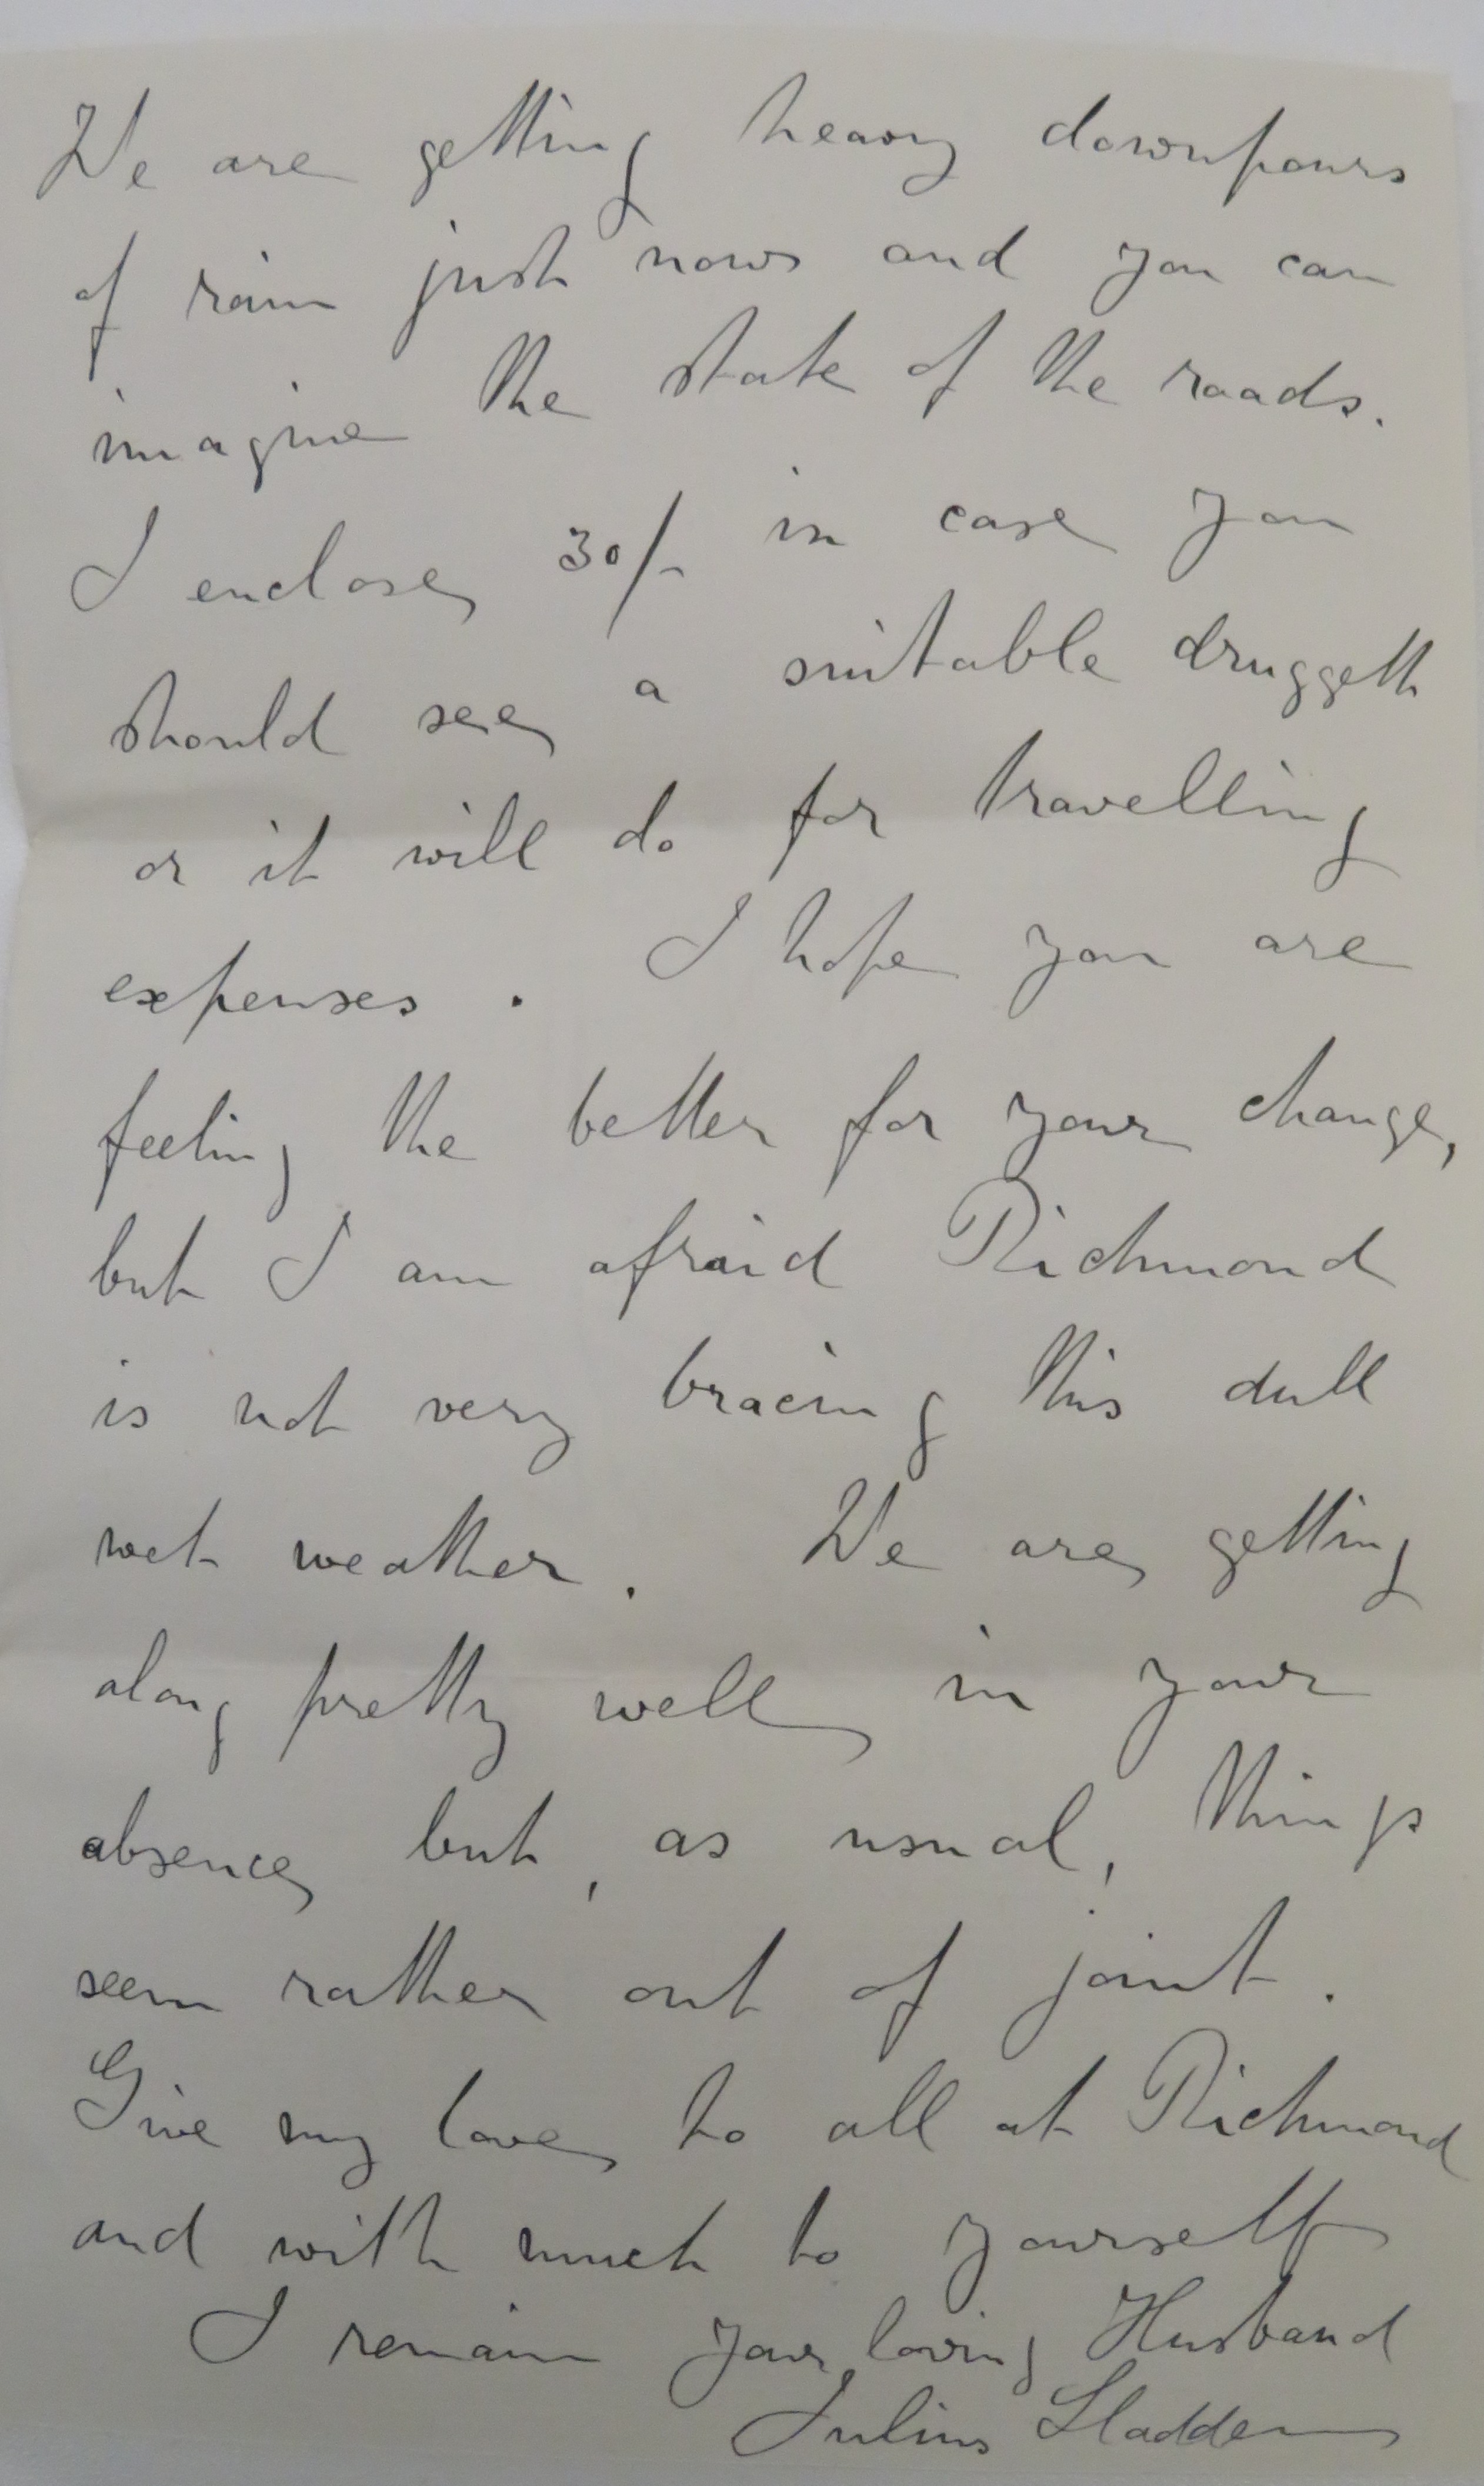 We are getting heavy downpours
of rain just now and you can
imagine the state of the roads.
I enclose 30/- in case you
should see a suitable druggett
or it will do for travelling
expenses. I hope you are
feeling the better for your change,
but I am afraid Richmond
is not very bracing this dull
wet weather. We are getting
along pretty well in your
absence but, as usual, things
seem rather out of joint.
Give my love to all at Richmond
and with much to yourself
I remain your loving Husband
Julius Sladden